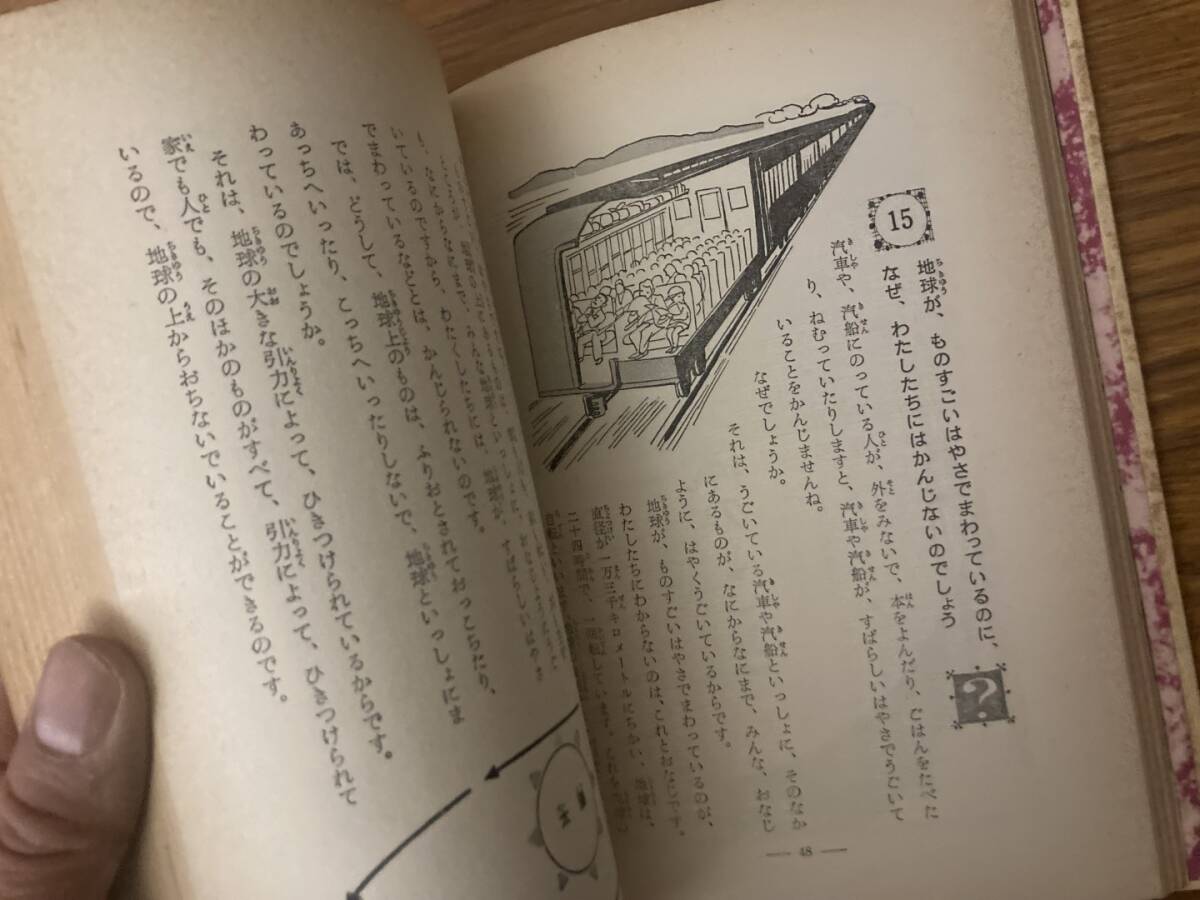 15
地球が、ものすごいはやさでまわっているのに、
なぜ、わたしたちにはかんじないのでしょう
?
汽車や、汽船にのっている人が、外をみないで、本をよんだり、ごはんをたべた
り、ねむっていたりしますと、汽車や汽船が、すばらしいはやさでうごいて
いることをかんじませんね。
なぜでしょうか。
それは、うごいている汽車や汽船といっしょに、そのなか
にあるものが、なにからなにまで、みんな、おなじ
ように、はやくうごいているからです。
地球が、ものすごいはやさでまわっているのが、
わたしたちにわからないのは、これとおなじです。
直径が一万三千キロメートルにちかい、地球は、
二十四時間で、一回転しています。これを地球の
48
も、なにからなにまで、みんな地球といっしょに、すばらしいはやさ
いているのですから、わたくしたちには、地球が、
でまわっているなどとは、かんじられないのです。
では、どうして、地球上のものは、ふりおとされておっこちたり、
あっちへいったり、こっちへいったりしないで、地球といっしょにま
わっているのでしょうか。
それは、地球の大きな引力によって、ひきつけられているからです。
家でも人でも、そのほかのものがすべて、引力によって、ひきつけられて
いるので、地球の上からおちないでいることができるのです。